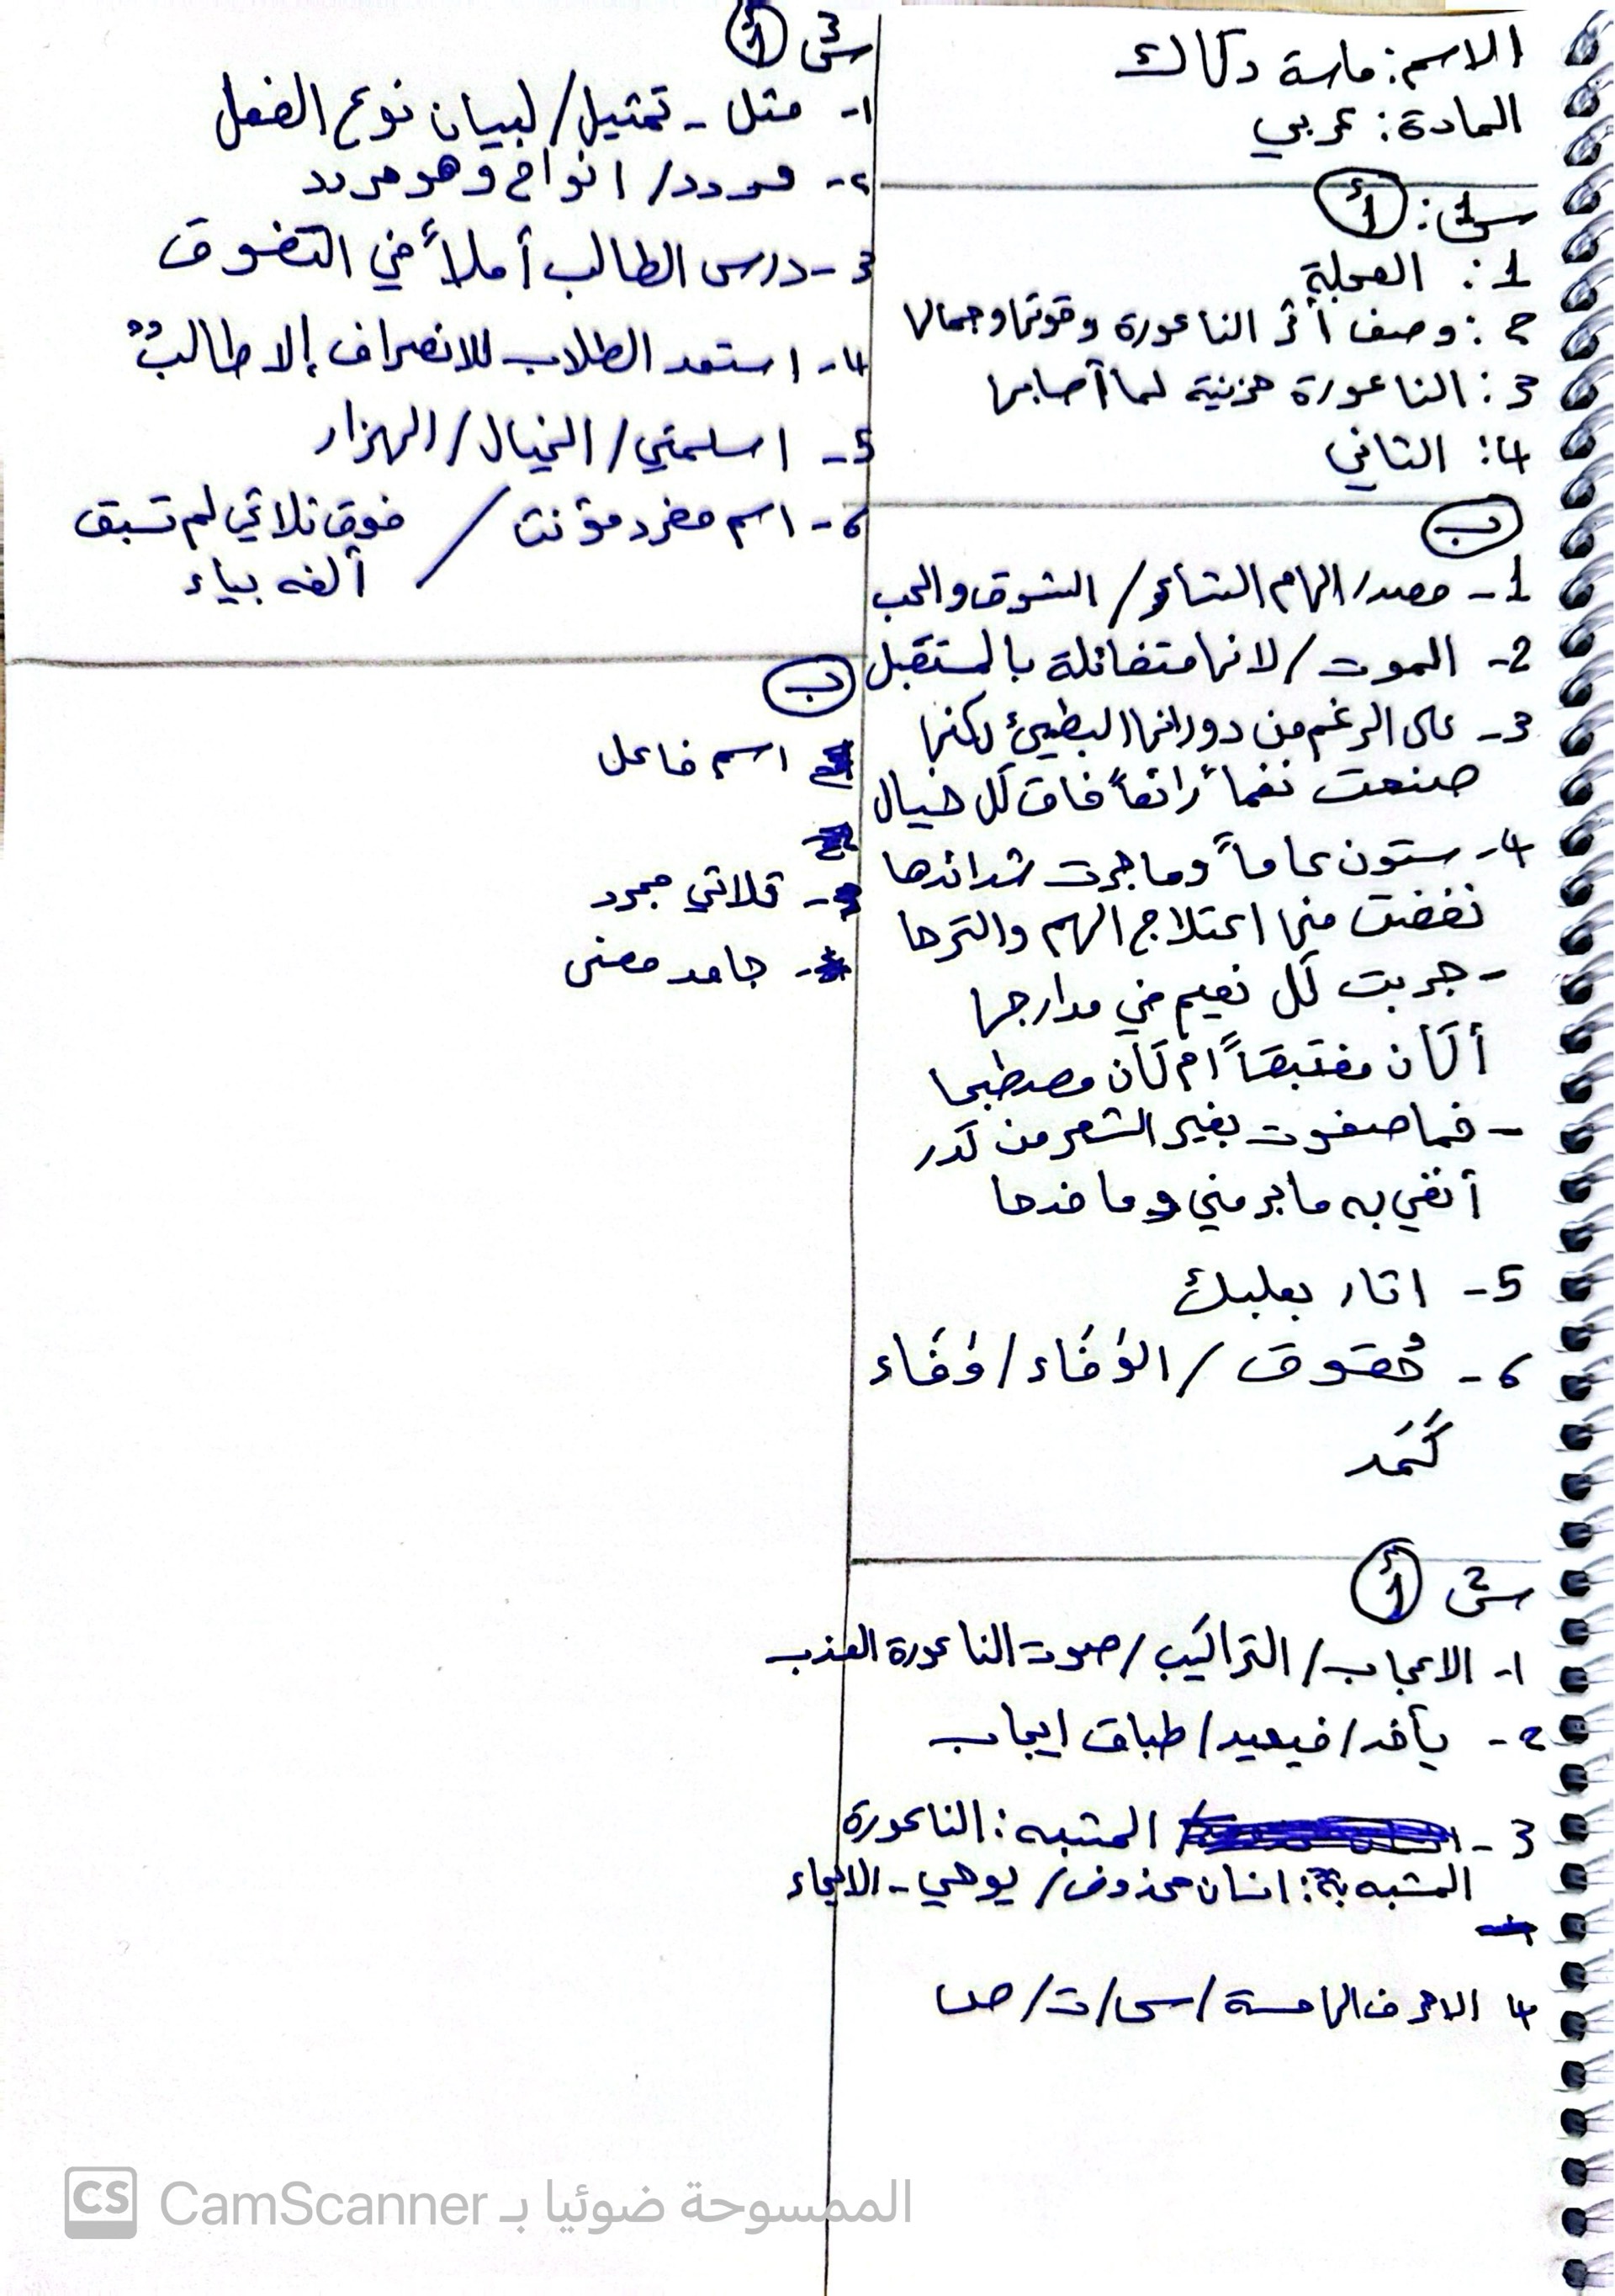 الاسم: ماسة دكاك
المادة: عربي
س1: أ
1: العجلة
2: وصف أثر الناعورة وقوتها وجمالها
3: الناعورة حزينة لما أصابها
4: الثاني
ب
1- مصدر الهام الشاعر / الشوق والحب
2- الموت / لانها متفائلة بالمستقبل
3- على الرغم من دورانها البطيئ لكنها
صنعت نغماً رائعاً فاق كل خيال
4- ستون عاماً وما جرت شدائدها
نفضت منها اعتلاج الهم والترحا
- جربت كل نعيم في مدارجها
أكان مغتبقاً ام كان مصطبحا
- فما صفوت بغير الشعر من كدر
أنفي به ما برمني وما فدحا
5- اثار بعلبك
6- حُقوق / الوَفَاء / وَفَاء
كَمَد
س2 أ
1- الاعجاب / التراكيب / صوت الناعورة العذب
2- يأخذ / فيعيد / طباق ايجاب
3- المشبه: الناعورة
المشبه به: انسان محذوف / يوحي - الايحاء
4 الاحرف الهامسة / س / ت / ص
س3 أ
1- مثل - تمثيل / لبيان نوع الفعل
2- مردد / انواح وهو مردد
3- درس الطالب أملاً في التفوق
4- استعد الطلاب للانصراف إلا طالبٌ
5- اسلمتني / الخيال / الهزار
6- اسم مفرد مؤنث / فوق ثلاثي لم تسبق
ألفه بياء
ب
اسم فاعل
3- ثلاثي مجرد
- جامد معنى
الممسوحة ضوئيا بـ CamScanner
CS